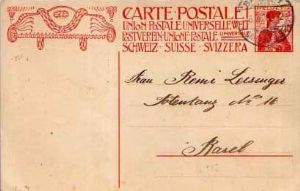 CARTE POSTALE
UNION POSTALE UNIVERSELLE WELT
POSTVEREIN UNIONE POSTALE UNIVERSALE
SCHWEIZ · SUISSE · SVIZZERA
Frau Remi Leisinger
No 16
Basel